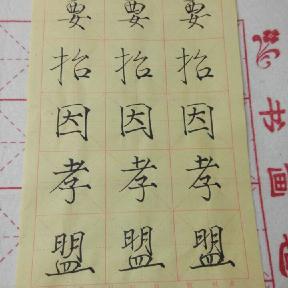 要 要 要
抬 抬 抬
因 因 因
孝 孝 孝
盟 盟 盟
书画